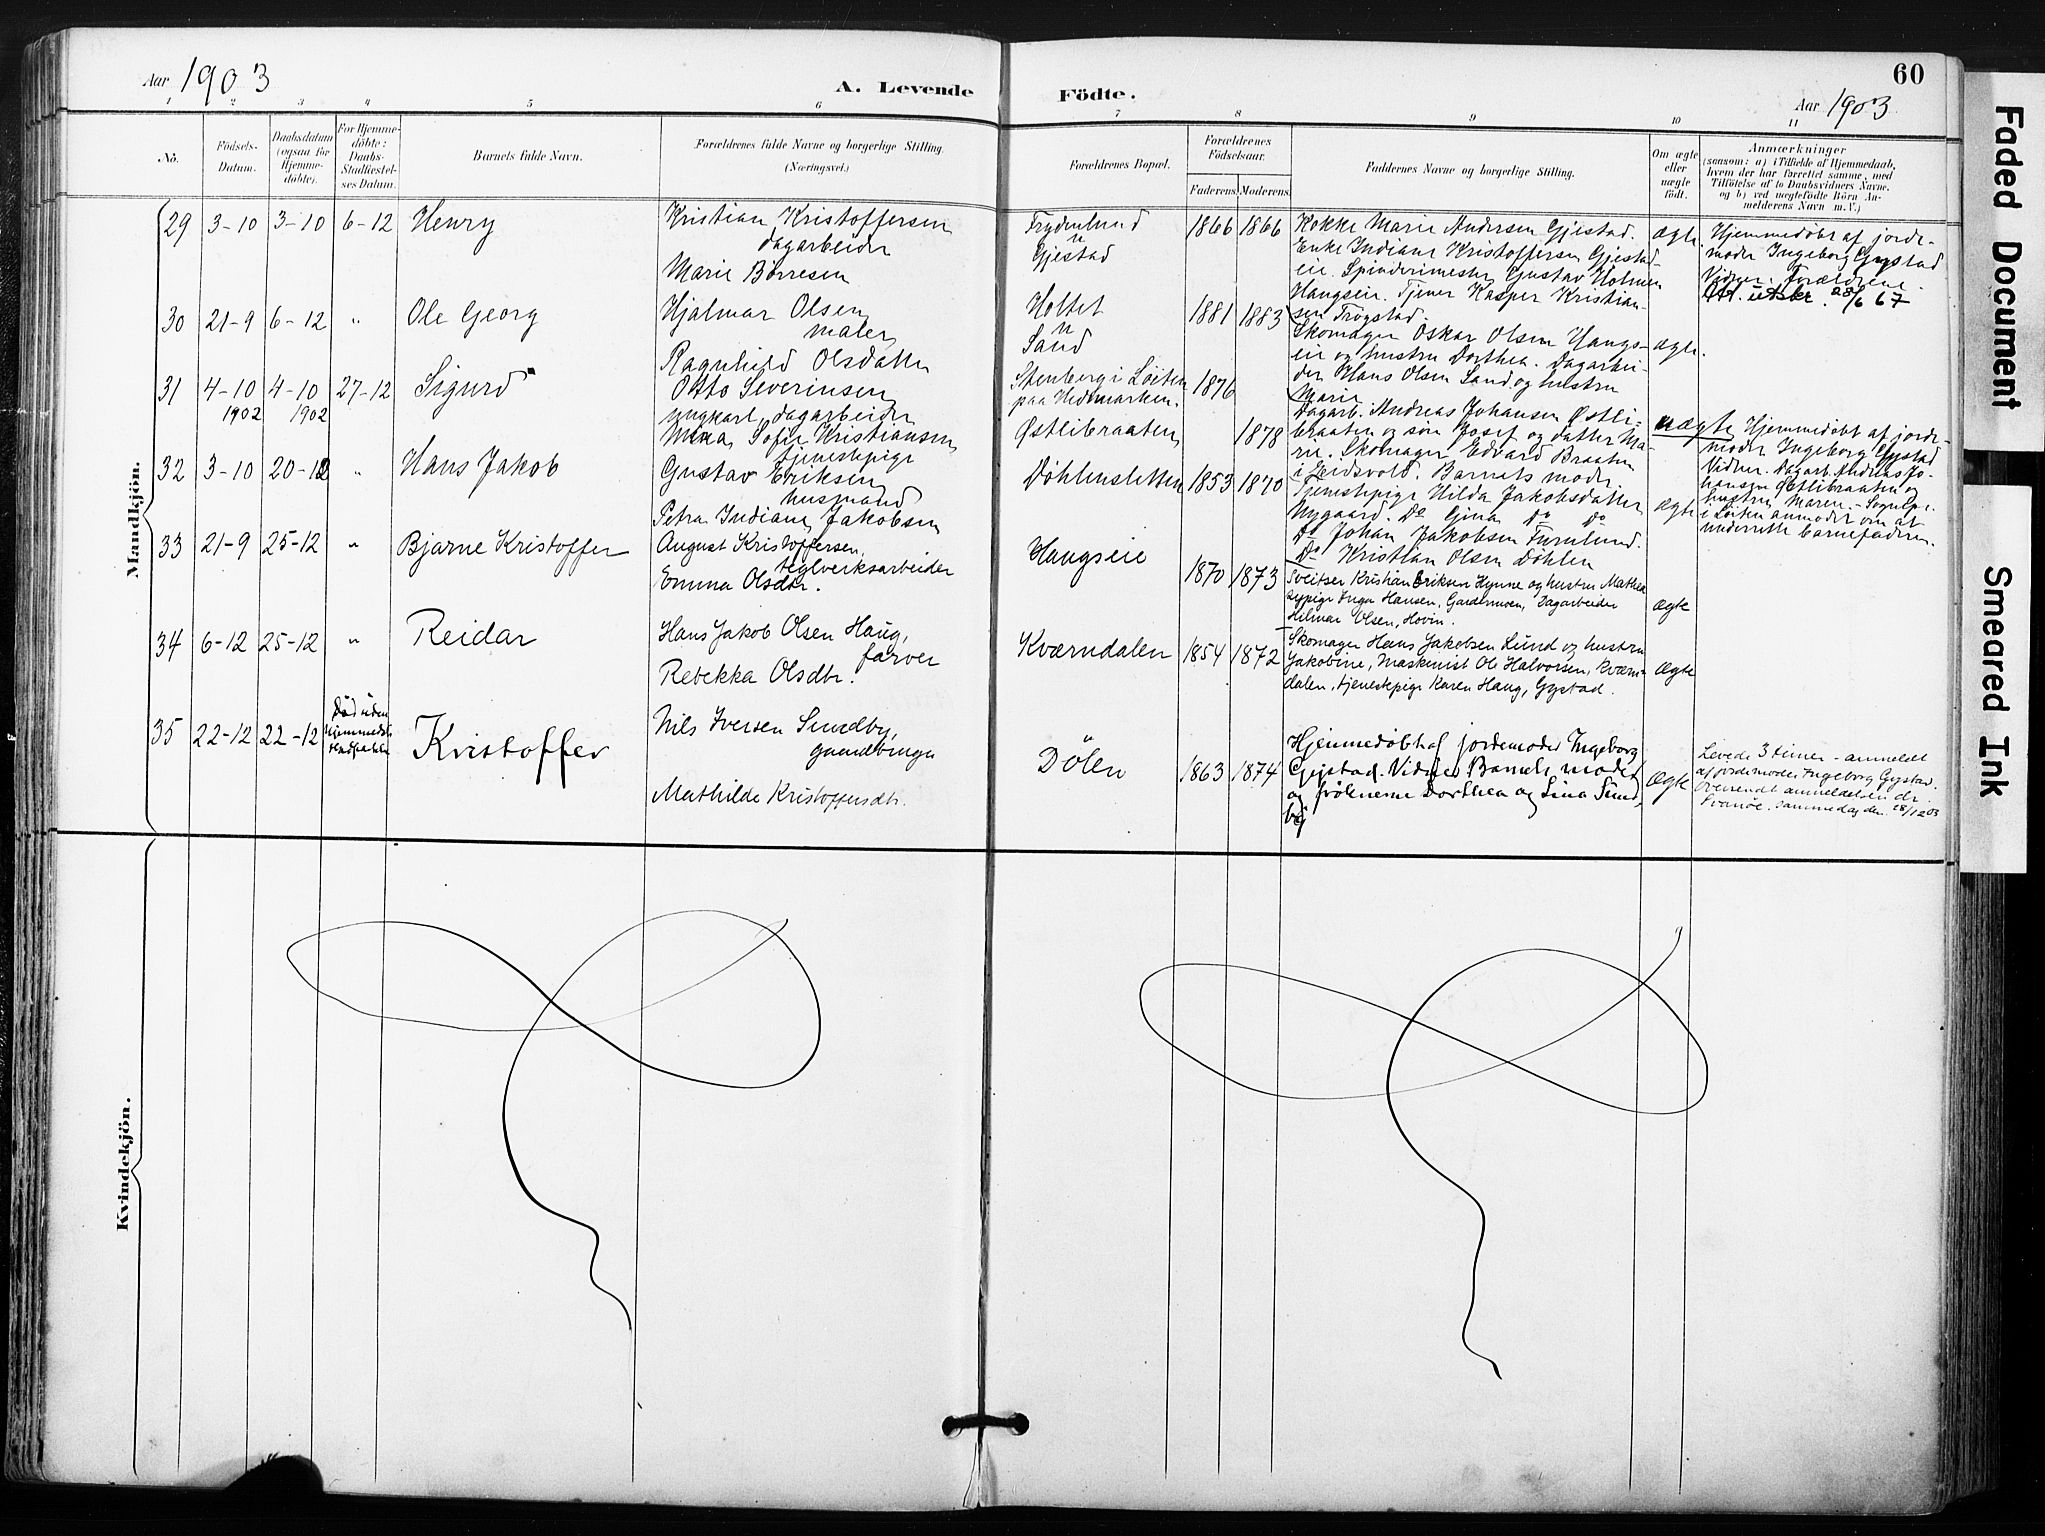 Aar 1903
A. Levende Födte.
60
Aar 1903
1 2 3 4 5 6 7 8 9 10 11
No.
Födsels-
Datum.
Daabsdatum
(ogsaa for
Hjemme-
döbte).
For Hjemme-
döbte:
Daabs-
Stadfæstel-
ses Datum.
Barnets fulde Navn.
Forældrenes fulde Navne og borgerlige Stilling.
(Næringsvei.)
Forældrenes Bopæl.
Forældrenes
Födselsaar.
Faderens. Moderens.
Faddernes Navne og borgerlige Stilling.
Om ægte
eller
uægte
födt.
Anmærkninger
(saasom: a) i Tilfælde af Hjemmedaab,
hvem der har forrettet samme, med
Tilföielse af to Daabsvidners Navne,
og b) ved uægtefödte Börn An-
melderens Navn m.V.)
Mandkjön.
29 3-10 3-10 6-12 Henry
Kristian Kristoffersen
dagarbeider
Marie Børresen
Frydenlund
u
Gjestad
1866 1866
Kokke Marie Andersen Gjestad.
Enke Indiane Kristoffersen Gjestad-
eie. Spinderimester Gustav Holmen
Haugseie. Tjener Kasper Kristian-
sen Trøgstad.
ægte.
Hjemmedøbt af jorde-
moder Ingeborg Gystad
Vidner: Forældrene.
Att. utskr. 28/6 67
30 21-9 6-12 " Ole Georg
Hjalmar Olsen
maler
Ragnhild Olsdatter
Holtet
u
Sand
1881 1883
Skomager Oskar Olsen Haugs-
eie og hustru Dorthea. Dagarbei-
der Hans Olsen Sand og hustru
Marie
ægte.
31 4-10 1902 4-10 1902 27-12 Sigurd
Otto Severinsen
ungkarl, dagarbeider
Mina Sofie Kristiansen
tjenestepige
Stenberg i Løiten
paa Hedmarken.
Østlibraaten
1876 1878
Dagarb. Andreas Johansen Østli-
braaten og søn Josef og datter Ma-
rie. Skomager Edvard Braaten
i Eidsvold. Barnets moder
uægte
Hjemmedøbt af jorde-
moder Ingeborg Gystad
Vidner. Dagarb. Andreas Jo-
hansen Østlibraaten og
hustru Maren. - Sognepr.
i Løiten anmodet om at
underrette barnefaderen.
32 3-10 20-12 " Hans Jakob
Gustav Eriksen
husmand
Petra Indiane Jakobsen
Døhlensletten
1853 1870
Tjenestepige Hilda Jakobsdatter
Nygaard. Do Gina Do Do
Do Johan Jakobsen Furulund.
Do Kristian Olsen Døhlen
ægte
33 21-9 25-12 " Bjarne Kristoffer
August Kristoffersen,
teglverksarbeider
Emma Olsdtr.
Haugseie
1870 1873
Sveitser Kristian Eriksen Hynne og hustru Mathea
sypige Inga Hansen, Gardermoen, Dagarbeider
Hilmar Olsen, Hovin.
ægte
34 6-12 25-12 " Reidar
Hans Jakob Olsen Haug,
farver
Rebekka Olsdtr.
Kværndalen
1854 1872
Skomager Hans Jakobsen Lund og hustru
Jakobine, Maskinist Ole Halvorsen, Kværn-
dalen, tjenestepige Karen Haug, Gystad.
ægte
35 22-12 22-12 Død uden
Hjemmedåbs
stadfæstelse
Kristoffer
Nils Iversen Sundby,
gaardbruger
Mathilde Kristoffersdtr.
Dölen
1863 1874
Hjemmedøbt af jordemoder Ingeborg
Gystad. Vidner Barnets moder
og frøknerne Dorthea og Lina Sund-
by
ægte
Levede 3 timer - anmeldt
af jordemoder Ingeborg Gystad.
Oversendt anmeldelsen dr.
Svanøe. sammedag den 28/12 03
Kvindekjön.
Faded Document
Smeared Ink